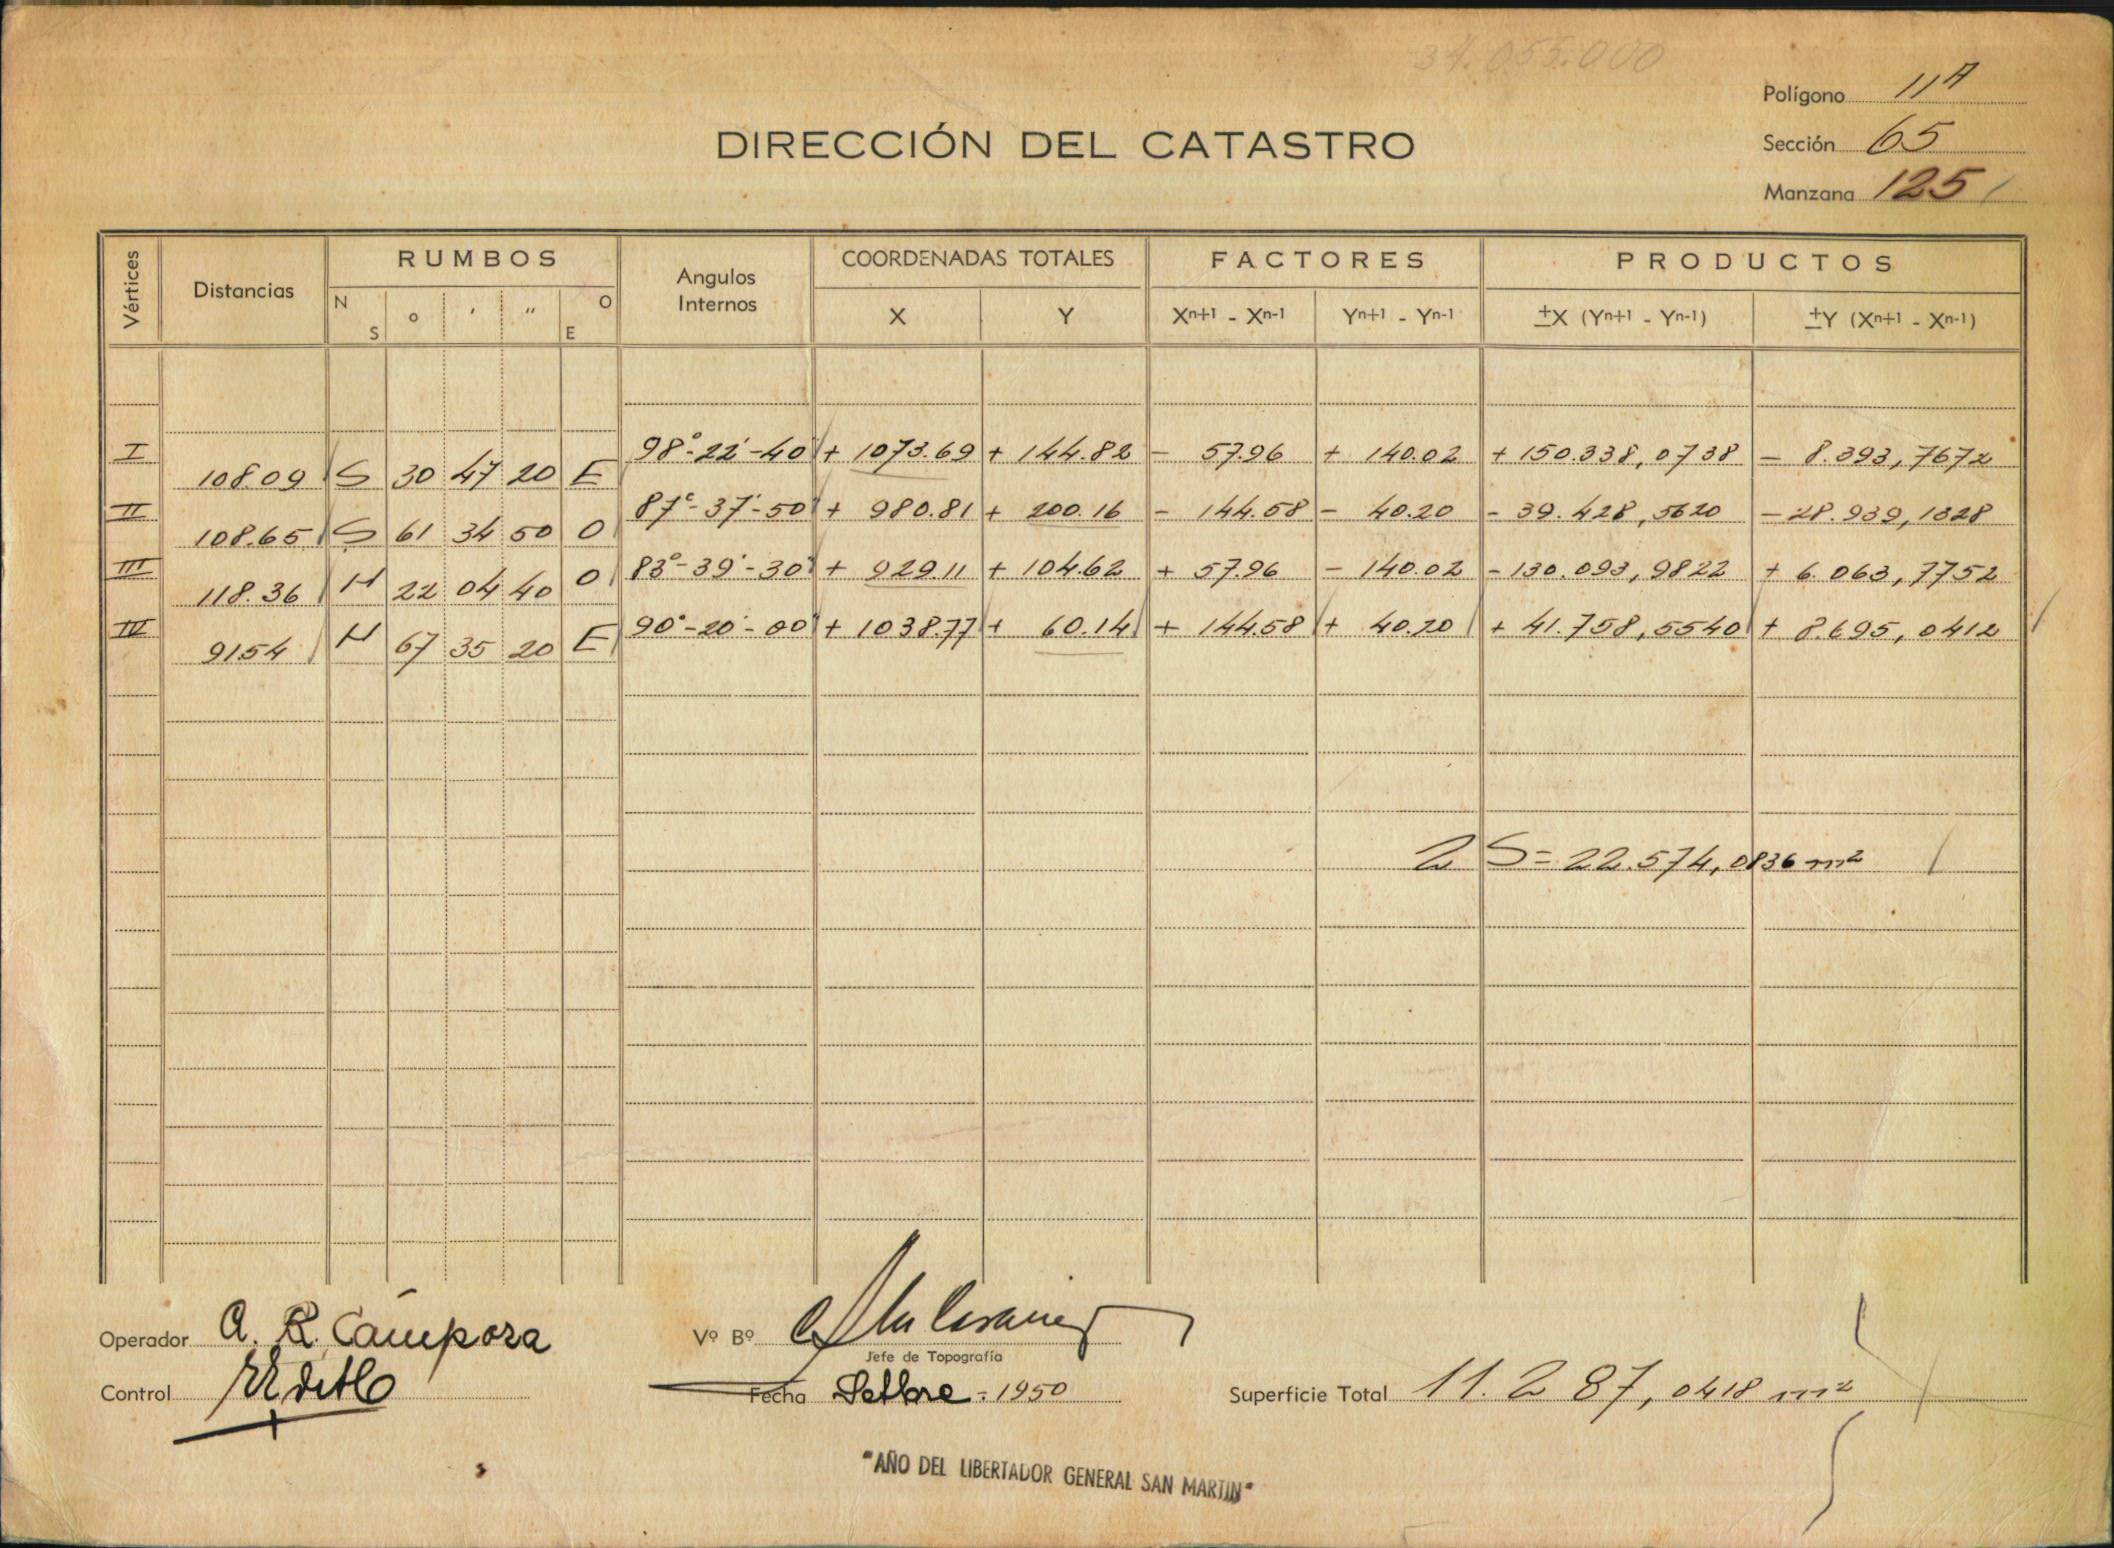 34.055.000
Polígono 11A
DIRECCIÓN DEL CATASTRO
Sección 65
Manzana 125
Vértices Distancias RUMBOS Angulos Internos COORDENADAS TOTALES FACTORES PRODUCTOS
N S ° ' " O E X Y Xn+1 - Xn-1 Yn+1 - Yn-1 ±X (Yn+1 - Yn-1) ±Y (Xn+1 - Xn-1)
I 98°-22'-40" + 1073.69 + 144.82 - 57.96 + 140.02 + 150.338,0738 - 8.393,7672
108.09 S 30 47 20 E
II 87°-37'-50" + 980.81 + 200.16 - 144.58 - 40.20 - 39.428,5620 - 28.939,1328
108.65 S 61 34 50 O
III 83°-39'-30" + 929.11 + 104.62 + 57.96 - 140.02 - 130.093,9822 + 6.063,7752
118.36 N 22 04 40 O
IV 90°-20'-00" + 1038.77 + 60.14 + 144.58 + 40.20 + 41.758,5540 + 8.695,0412
91.54 N 67 35 20 E
2 S = 22.574,0836 m²
Operador A. R. Cámpora Vº Bº
Jefe de Topografía
Control Fecha Setbre - 1950 Superficie Total 11.287,0418 m²
"AÑO DEL LIBERTADOR GENERAL SAN MARTIN"